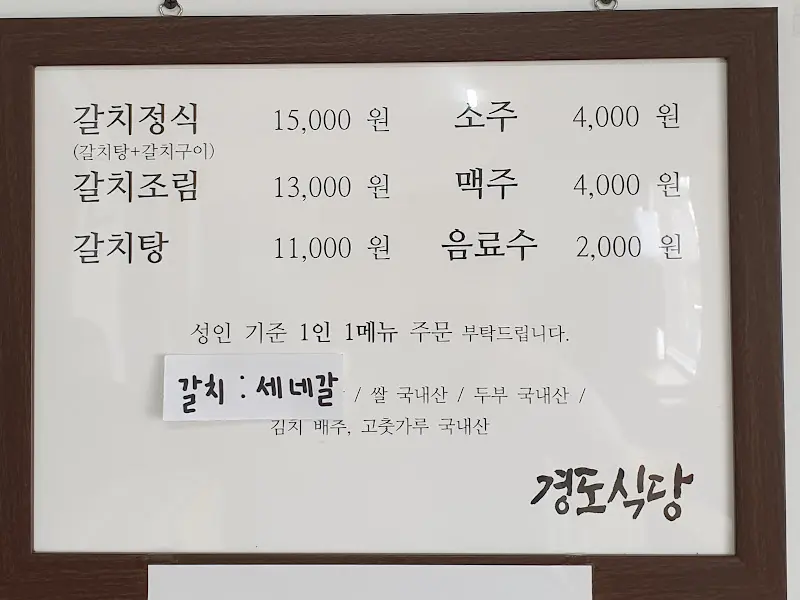 갈치정식 15,000 원 소주 4,000 원
(갈치탕+갈치구이)
갈치조림 13,000 원 맥주 4,000 원
갈치탕 11,000 원 음료수 2,000 원
성인 기준 1인 1메뉴 주문 부탁드립니다.
갈치 : 세네갈 / 쌀 국내산 / 두부 국내산 /
김치 배추, 고춧가루 국내산
경도식당